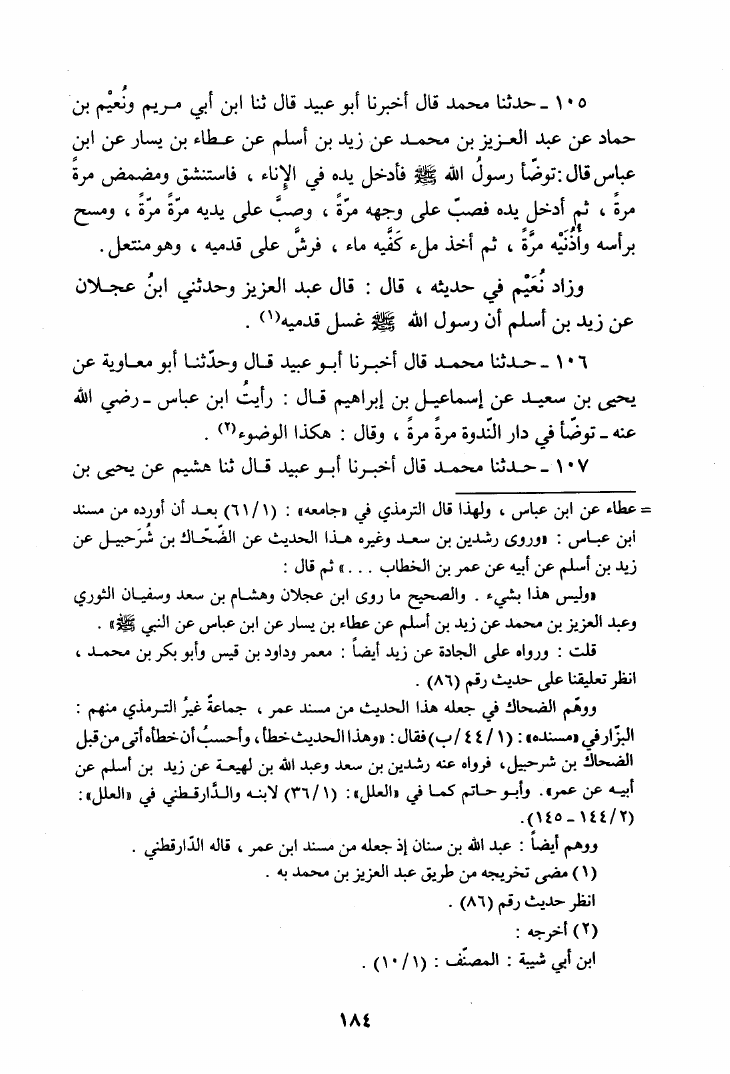 ١٠٥ ـ حدثنا محمد قال أخبرنا أبو عبيد قال ثنا ابن أبي مريم ونُعَيْم بن
حماد عن عبد العزيز بن محمد عن زيد بن أسلم عن عطاء بن يسار عن ابن
عباس قال : توضّأ رسولُ الله ﷺ فأدخل يده في الإناء ، فاستنشق ومضمض مرةً
مرةً ، ثم أدخل يده فصبّ على وجهه مرّةً ، وصبَّ على يديه مرّةً مرّةً ، ومسح
برأسه وأُذُنَيْه مرَّةً ، ثم أخذ ملء كَفَّيه ماء ، فرشَّ على قدميه ، وهو منتعل .
وزاد نُعَيْم في حديثه ، قال : قال عبد العزيز وحدثني ابنُ عجلان
عن زيد بن أسلم أن رسول الله ﷺ غسل قدميه(١) .
١٠٦ ـ حدثنا محمد قال أخبرنا أبو عبيد قال وحدّثنا أبو معاوية عن
يحيى بن سعيد عن إسماعيل بن إبراهيم قال : رأيتُ ابن عباس ـ رضي الله
عنه ـ توضّأ في دار النّدوة مرةً مرةً ، وقال : هكذا الوضوء(٢) .
١٠٧ ـ حدثنا محمد قال أخبرنا أبو عبيد قال ثنا هشيم عن يحيى بن
= عطاء عن ابن عباس ، ولهذا قال الترمذي في «جامعه» : (٦١/١) بعد أن أورده من مسند
ابن عباس : «وروى رشدين بن سعد وغيره هذا الحديث عن الضّحّاك بن شُرَحبيل عن
زيد بن أسلم عن أبيه عن عمر بن الخطاب . . .» ثم قال :
«وليس هذا بشيء . والصحيح ما روى ابن عجلان وهشام بن سعد وسفيان الثوري
وعبد العزيز بن محمد عن زيد بن أسلم عن عطاء بن يسار عن ابن عباس عن النبي ﷺ» .
قلت : ورواه على الجادة عن زيد أيضاً : معمر وداود بن قيس وأبو بكر بن محمد ،
انظر تعليقنا على حديث رقم (٨٦) .
ووهّم الضحاك في جعله هذا الحديث من مسند عمر ، جماعةٌ غيرُ الترمذي منهم :
البزّار في «مسنده» : (١/ ٤٤/ب) فقال : «وهذا الحديث خطأ ، وأحسبُ أن خطأه أتى من قبل
الضحاك بن شرحبيل، فرواه عنه رشدين بن سعد وعبد الله بن لهيعة عن زيد بن أسلم عن
أبيه عن عمر» . وأبو حاتم كما في «العلل» : (٣٦/١) لابنه والدَّارقطني في «العلل» :
(٢/ ١٤٤ ـ ١٤٥) .
ووهم أيضاً : عبد الله بن سنان إذ جعله من مسند ابن عمر ، قاله الدّارقطني .
(١) مضى تخريجه من طريق عبد العزيز بن محمد به .
انظر حديث رقم (٨٦) .
(٢) أخرجه :
ابن أبي شيبة : المصنّف : (١٠/١) .
١٨٤